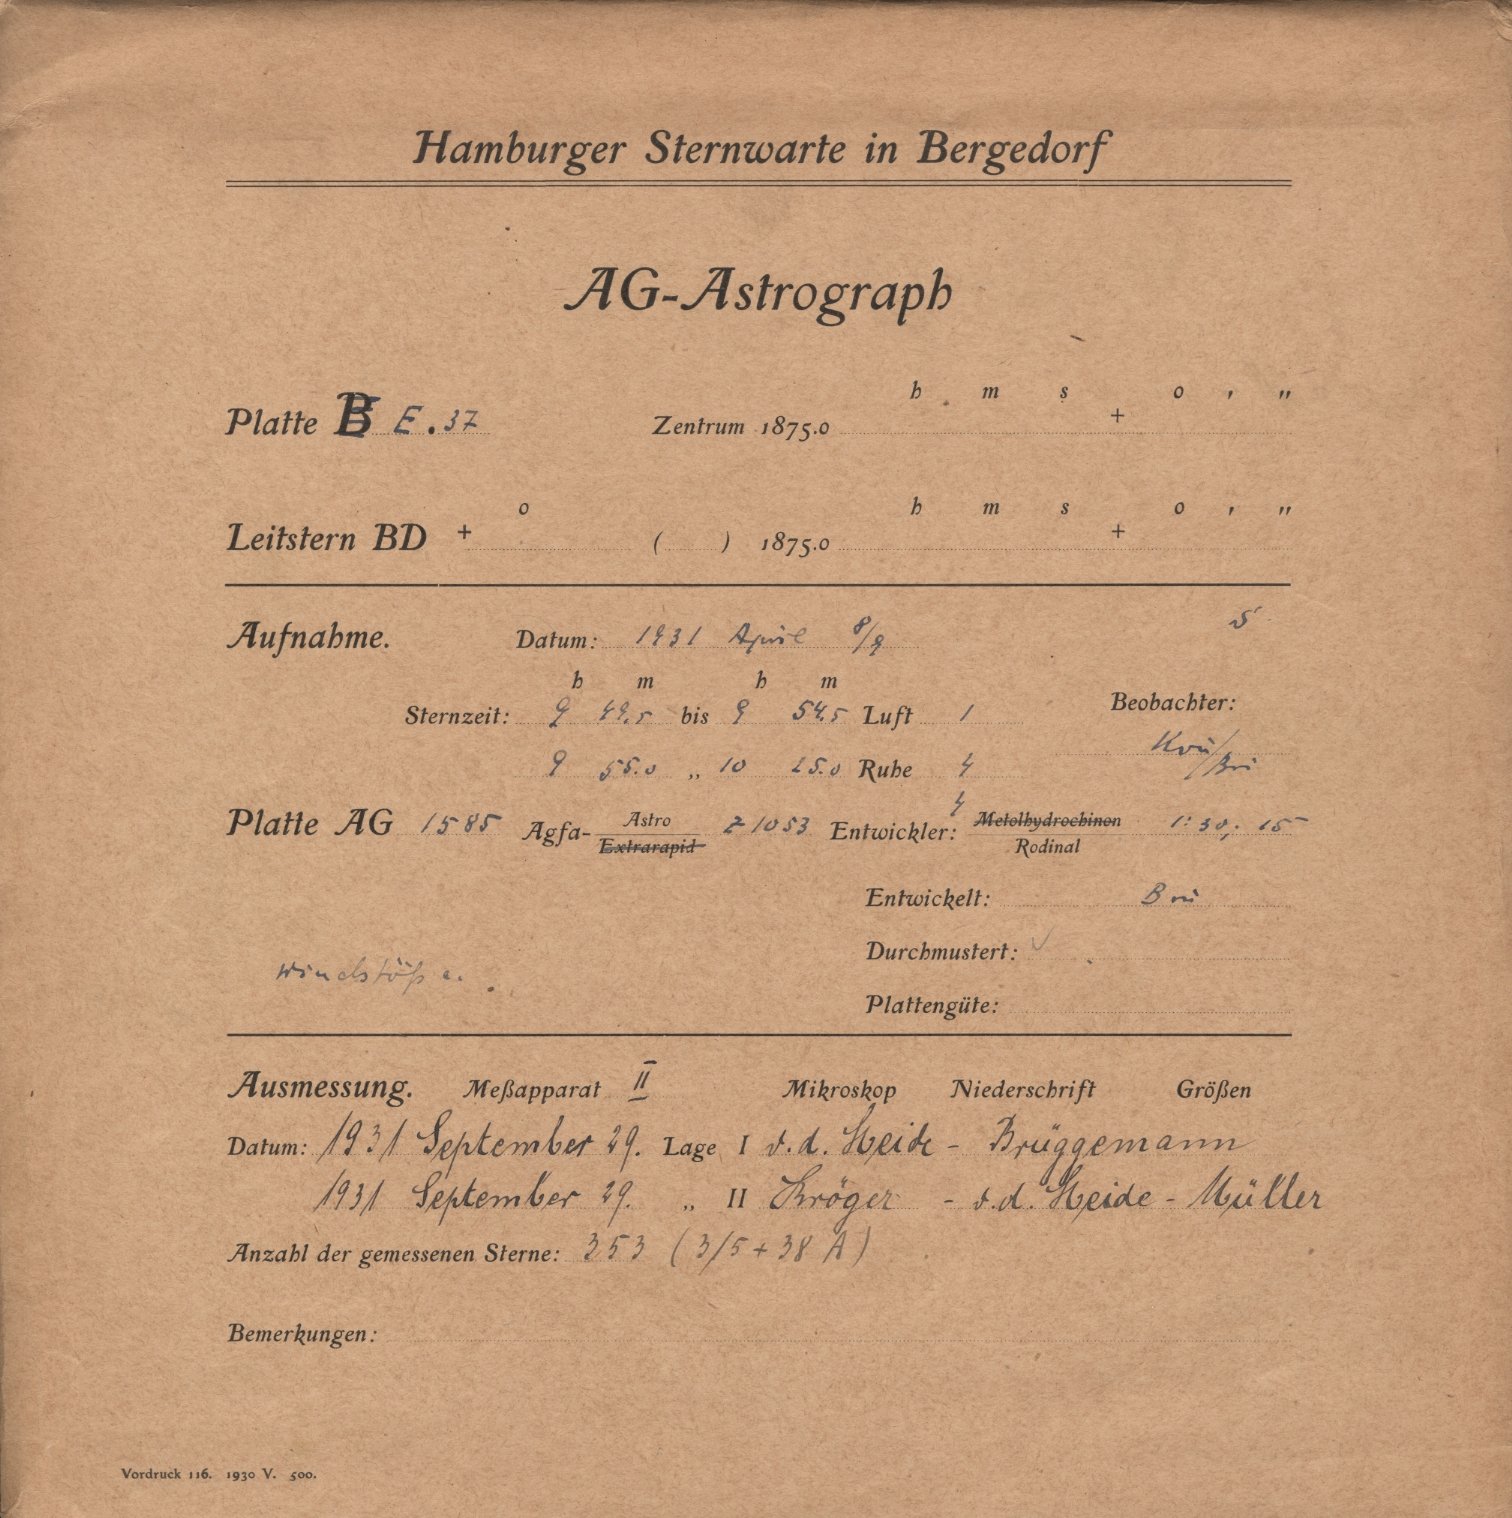 Hamburger Sternwarte in Bergedorf
AG-Astrograph
h m s o ' "
Platte B E. 37 Zentrum 1875.0 +
o h m s o ' "
Leitstern BD + ( ) 1875.0 +
Aufnahme. Datum: 1931 April 8/9 5
h m h m
Sternzeit: 9 49.5 bis 9 54.5 Luft 1 Beobachter:
9 55.0 „ 10 25.0 Ruhe 4 Krü/Brü
4
Platte AG 1585 Agfa- Astro Z 1053 Entwickler: Metolhydrochinon 1:30; 15
Extrarapid Rodinal
Entwickelt: Brü
Durchmustert: ✓
Windstöße.
Plattengüte:
Ausmessung. Meßapparat II Mikroskop Niederschrift Größen
Datum: 1931 September 29. Lage I v. d. Heide - Brüggemann
1931 September 29. „ II Kröger - v. d. Heide - Müller
Anzahl der gemessenen Sterne: 353 (315 + 38 A)
Bemerkungen:
Vordruck 116. 1930 V. 500.